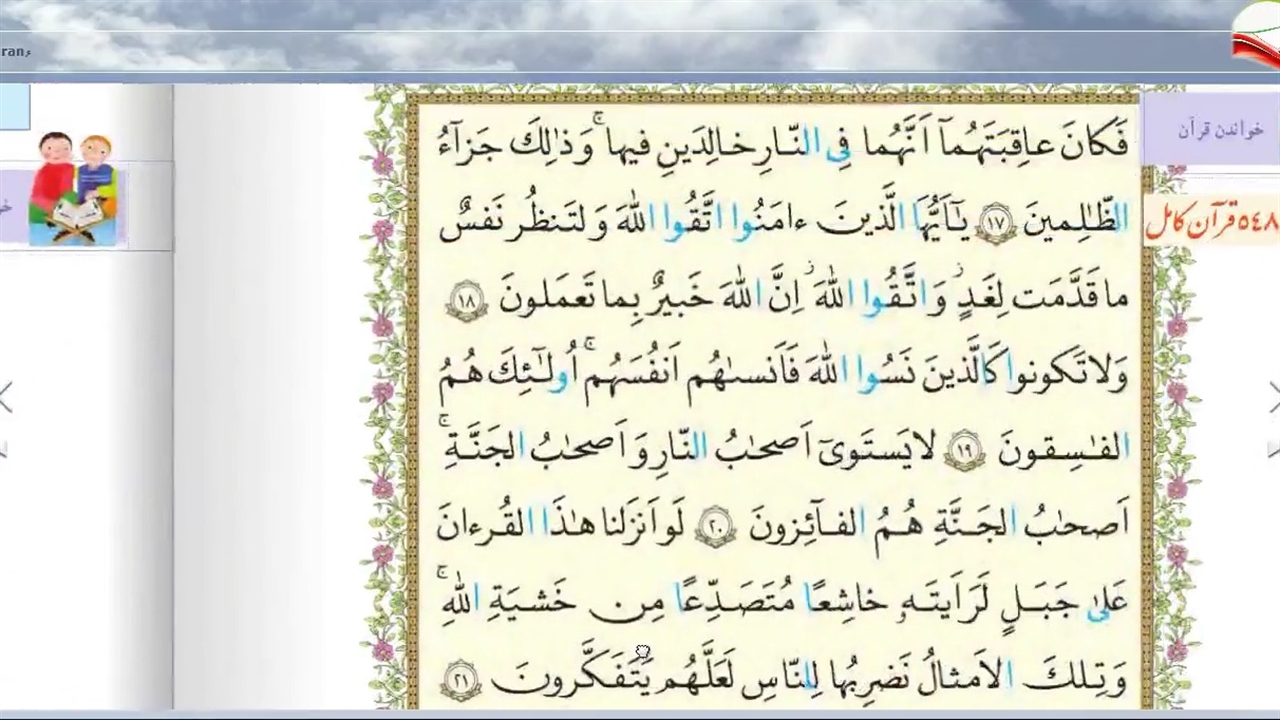 ran،
خواندن قرآن
۵۴۸ قرآن کامل
فَكَانَ عاقِبَتَهُمآ اَنَّهُما فِى النّارِ خالِدَينِ فيها ۚ وَذٰلِكَ جَزٰٓؤُا
الظّٰلِمينَ ﴿١٧﴾ يٰٓاَيُّهَا الَّذينَ ءامَنُوا اتَّقُوا اللّٰهَ وَ لتَنظُر نَفسٌ
ما قَدَّمَت لِغَدٍ ۖ وَ اتَّقُوا اللّٰهَ ۚ اِنَّ اللّٰهَ خَبيرٌ بِما تَعمَلونَ ﴿١٨﴾
وَلا تَكونوا كَالَّذينَ نَسُوا اللّٰهَ فَاَنسىٰهُم اَنفُسَهُم ۚ اُولٰٓئِكَ هُمُ
الفٰسِقونَ ﴿١٩﴾ لا يَستَوىٓ اَصحٰبُ النّارِ وَ اَصحٰبُ الجَنَّةِ ۚ
اَصحٰبُ الجَنَّةِ هُمُ الفآئِزونَ ﴿٢٠﴾ لَو اَنزَلنا هٰذَا القُرءانَ
عَلىٰ جَبَلٍ لَرَاَيتَهٗ خاشِعًا مُتَصَدِّعًا مِن خَشيَةِ اللّٰهِ ۚ
وَ تِلكَ الاَمثالُ نَضرِبُها لِلنّاسِ لَعَلَّهُم يَتَفَكَّرونَ ﴿٢١﴾